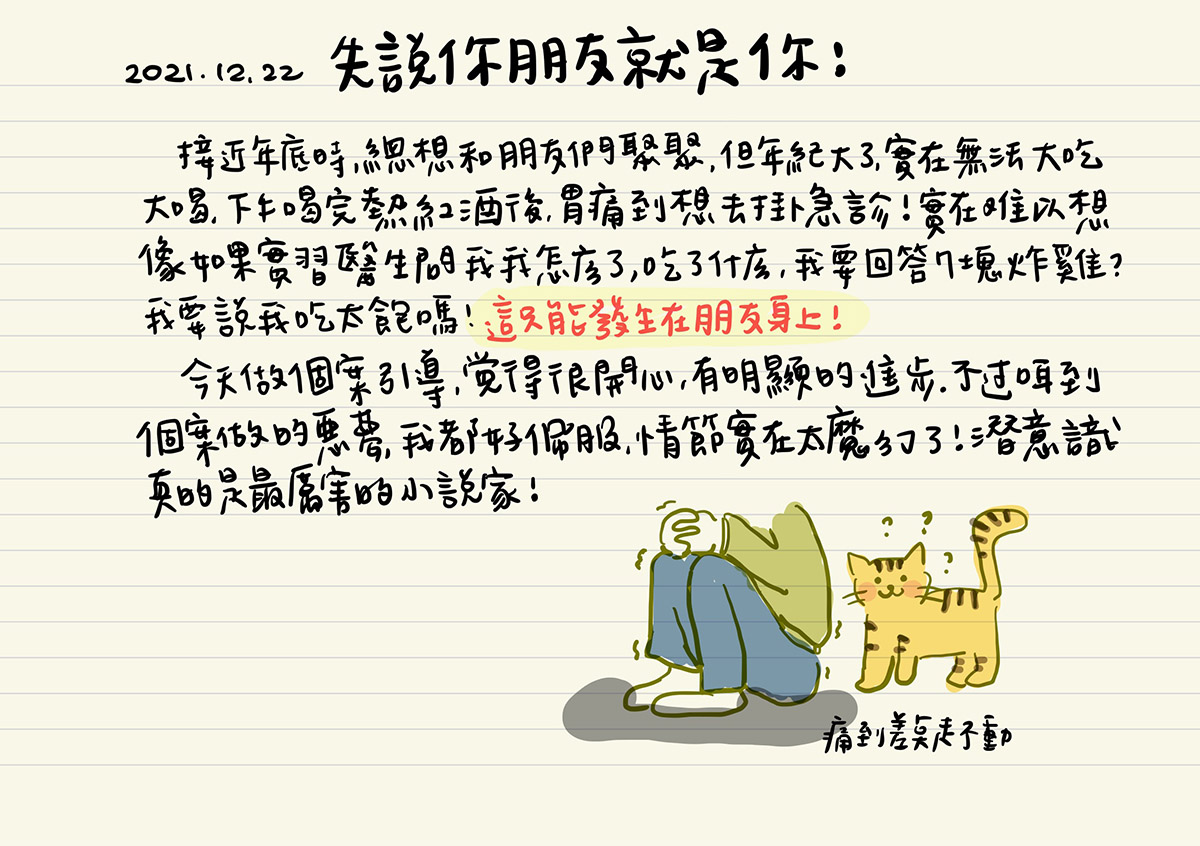 2021.12.22 失說你朋友就是你!
接近年底時,總想和朋友們聚聚,但年紀大了,實在無法大吃
大喝,下午喝完熱紅酒後,胃痛到想去掛急診!實在难以想
像如果實習醫生問我我怎麼了,吃了什麼,我要回答7塊炸雞?
我要說我吃太飽嗎!這只能發生在朋友身上!
今天做個案引導,覚得很開心,有明顯的進步.不过听到
個案做的惡夢,我都好佩服,情節實在太魔幻了!潛意識
真的是最厲害的小說家!
? ? ?
痛到差點走不動